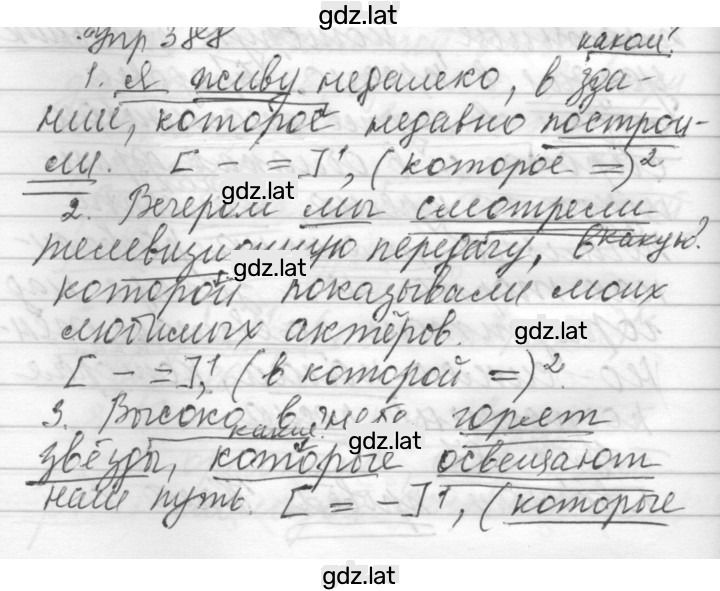 gdz.lat
Упр 388
каком?
1. Я живу недалеко, в зда-
нии, которое недавно построи-
ли. [ - = ]¹, (которое =)².
gdz.lat
2. Вечером мы смотрели
телевизионную передачу, в какую?
gdz.lat
которой показывали моих
любимых актёров.
gdz.lat
[ - = ],¹ (в которой =)².
3. Высоко в небе горят
какие?
gdz.lat
звёзды, которые освещают
наш путь. [ = - ]¹, (которые
gdz.lat